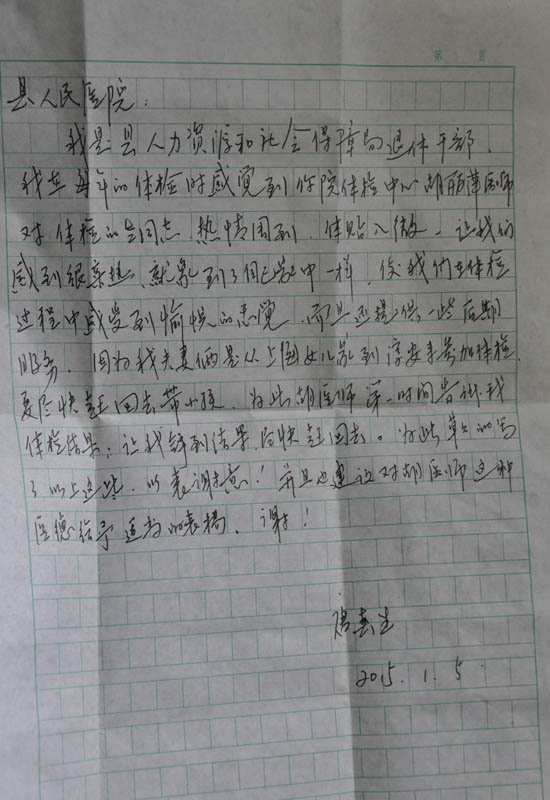 第 页
县人民医院:
我是县人力资源和社会保障局退休干部,
我在每年的体检时感觉到你院体检中心胡丽萍医师
对体检的老同志热情周到、体贴入微。让我们
感到很亲热、就象到了自己家中一样,使我们在体检
过程中感受到愉快的感觉,而且还提供一些后期
服务。因为我夫妻俩是从上海女儿家到淳安来参加体检,
要尽快赶回去带小孩,为此胡医师第一时间告诉我
体检结果,让我得到结果后快赶回去。为此草草的写
了以上这些,以表谢意!并且也建议对胡医师这种
医德给予适当的表扬,谢谢!
2015.1.5